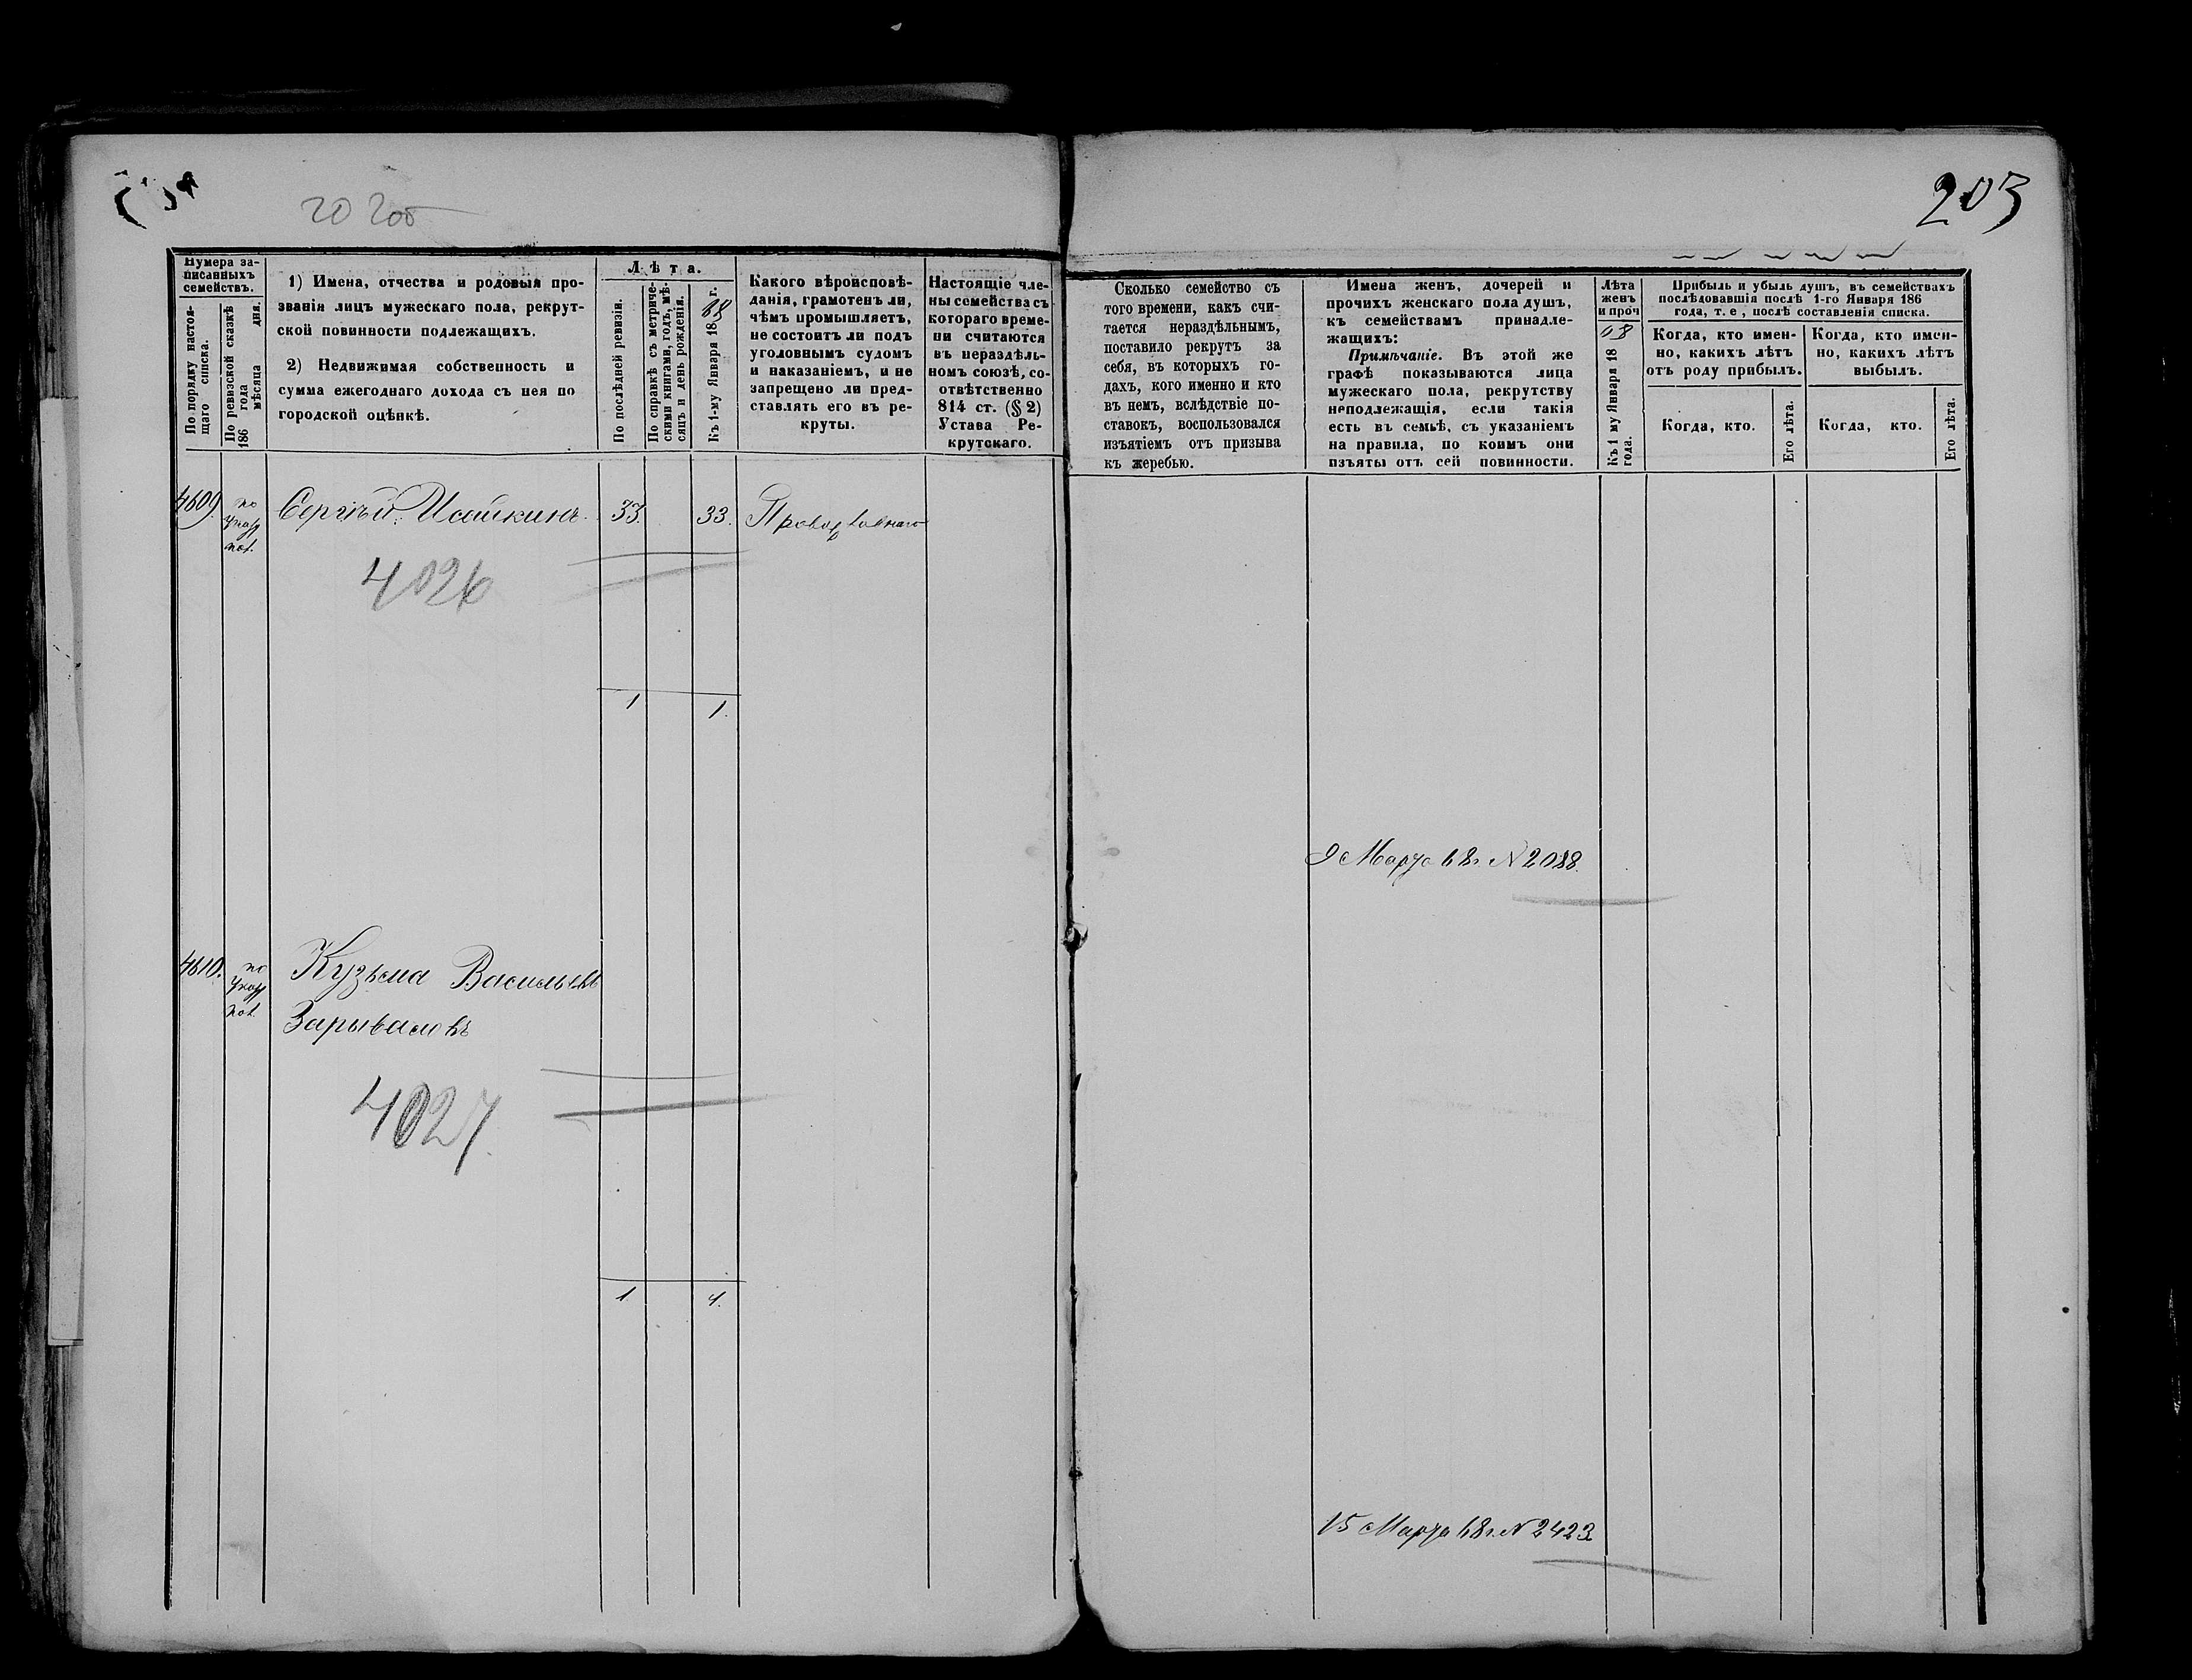 20 200
203
Нумера за-
писанныхъ
семействъ.
По порядку настоя-
щаго списка.
По ревизской сказкѣ
186 года
мѣсяца дня.
1) Имена, отчества и родовыя про-
званія лицъ мужескаго пола, рекрут-
ской повинности подлежащихъ.
2) Недвижимая собственность и
сумма ежегоднаго дохода съ нея по
городской оцѣнкѣ.
Лѣта.
По послѣдней ревизіи.
По справкѣ съ метриче-
скими книгами, годъ, мѣ-
сяцъ и день рожденія.
Къ 1-му Января 1868 г.
Какого вѣроисповѣ-
данія, грамотенъ ли,
чѣмъ промышляетъ,
не состоитъ ли подъ
уголовнымъ судомъ
и наказаніемъ, и не
запрещено ли пред-
ставлять его въ ре-
круты.
Настоящіе чле-
ны семейства съ
котораго време-
ни считаются
въ нераздѣль-
номъ союзѣ, со-
отвѣтственно
814 ст. (§ 2)
Устава Ре-
крутскаго.
Сколько семейство съ
того времени, какъ счи-
тается нераздѣльнымъ,
поставило рекрутъ за
себя, въ которыхъ го-
дахъ, кого именно и кто
въ немъ, вслѣдствіе по-
ставокъ, воспользовался
изъятіемъ отъ призыва
къ жеребью.
Имена женъ, дочерей и
прочихъ женскаго пола душъ,
къ семействамъ принадле-
жащихъ:
Примѣчаніе. Въ этой же
графѣ показываются лица
мужескаго пола, рекрутству
неподлежащія, если такія
есть въ семьѣ, съ указаніемъ
на правила, по коимъ они
изъяты отъ сей повинности.
Лѣта
женъ
и проч
Къ 1 му Января 1868
года.
Прибыль и убыль душъ, въ семействахъ
послѣдовавшія послѣ 1-го Января 186
года, т. е, послѣ составленія списка.
Когда, кто имен-
но, какихъ лѣтъ
отъ роду прибылъ.
Когда, кто имен-
но, какихъ лѣтъ
выбылъ.
Когда, кто.
Его лѣта.
Когда, кто.
Его лѣта.
4609. по Сергѣй Исайкинъ. 33. 33.
4026
1 1.
9 Марта 68 г. N 2088.
4610. по Кузьма Васильевъ
Зарываловъ
4027.
1 1.
15 Марта 68 г. N 2423